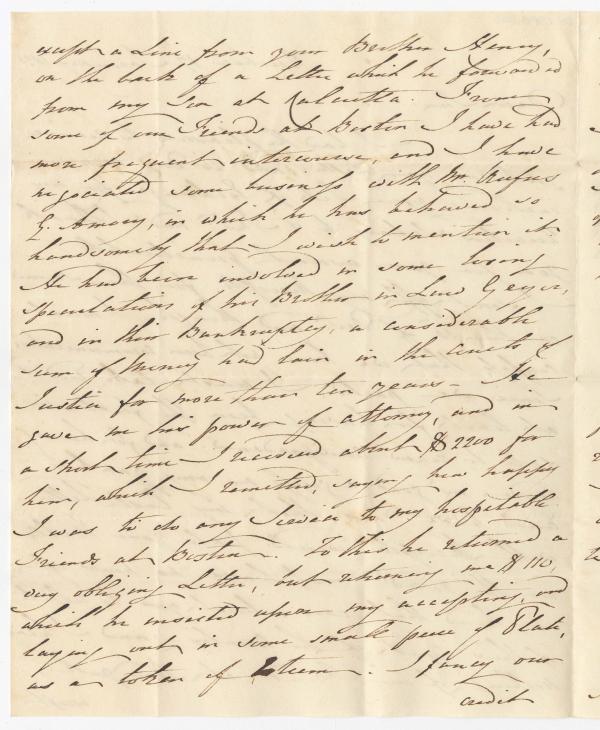 except a Line from your Brother Henry,
on the back of a Letter which he forward'd
from my Son at Calcutta. From
some of our Friends at Boston I have had
more frequent intercourse, and I have
negociated some business with Mr. Rufus
G. Amory, in which he has behaved so
handsomely that I wish to mention it.
He had been involved in some losing
speculations of his Brother in Law Geyer,
and in their Bankruptcy, a considerable
sum of money had lain in the Courts of
Justice for more than ten years — He
gave me his power of attorney, and in
a short time I received about $2200 for
him, which I remitted, saying how happy
I was to do any Service to my hospitable
Friends at Boston. To this he returned a
very obliging Letter, but returning me $110,
which he insisted upon my accepting, and
laying out in some small piece of Plate,
as a token of Esteem. I fancy our
credit